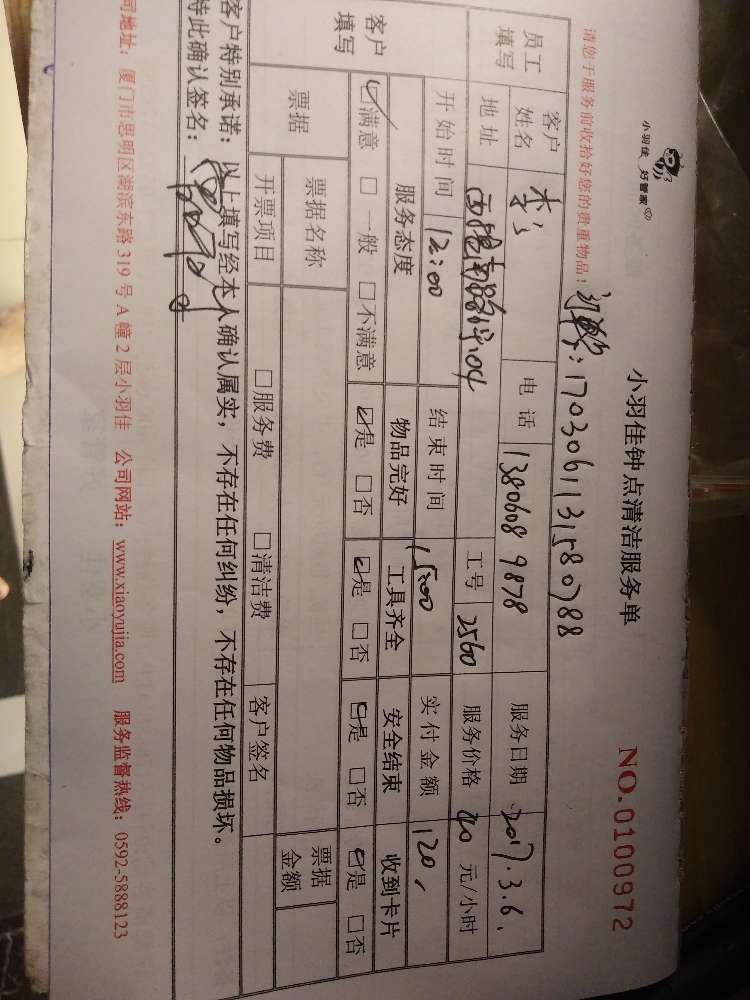 小羽佳 好管家
小羽佳钟点清洁服务单
NO.0100972
请您于服务前收拾好您的贵重物品！ 1703061131580788
员工填写 客户姓名 李 电话 13806089878 服务日期 2017.3.6.
地址 04 工号 2560 服务价格 40 元/小时
开始时间 12:00 结束时间 15:00 实付金额 120,
客户填写 服务态度 物品完好 工具齐全 安全结束 收到卡片
☑满意 □一般 □不满意 ☑是 □否 ☑是 □否 ☑是 □否 ☑是 □否
票据 票据名称 票据金额
开票项目 □服务费 □清洁费 客户签名
客户特别承诺：以上填写经本人确认属实，不存在任何纠纷，不存在任何物品损坏。
特此确认签名：
司地址：厦门市思明区湖滨东路319号A幢2层小羽佳 公司网站：www.xiaoyujia.com 服务监督热线：0592-5888123